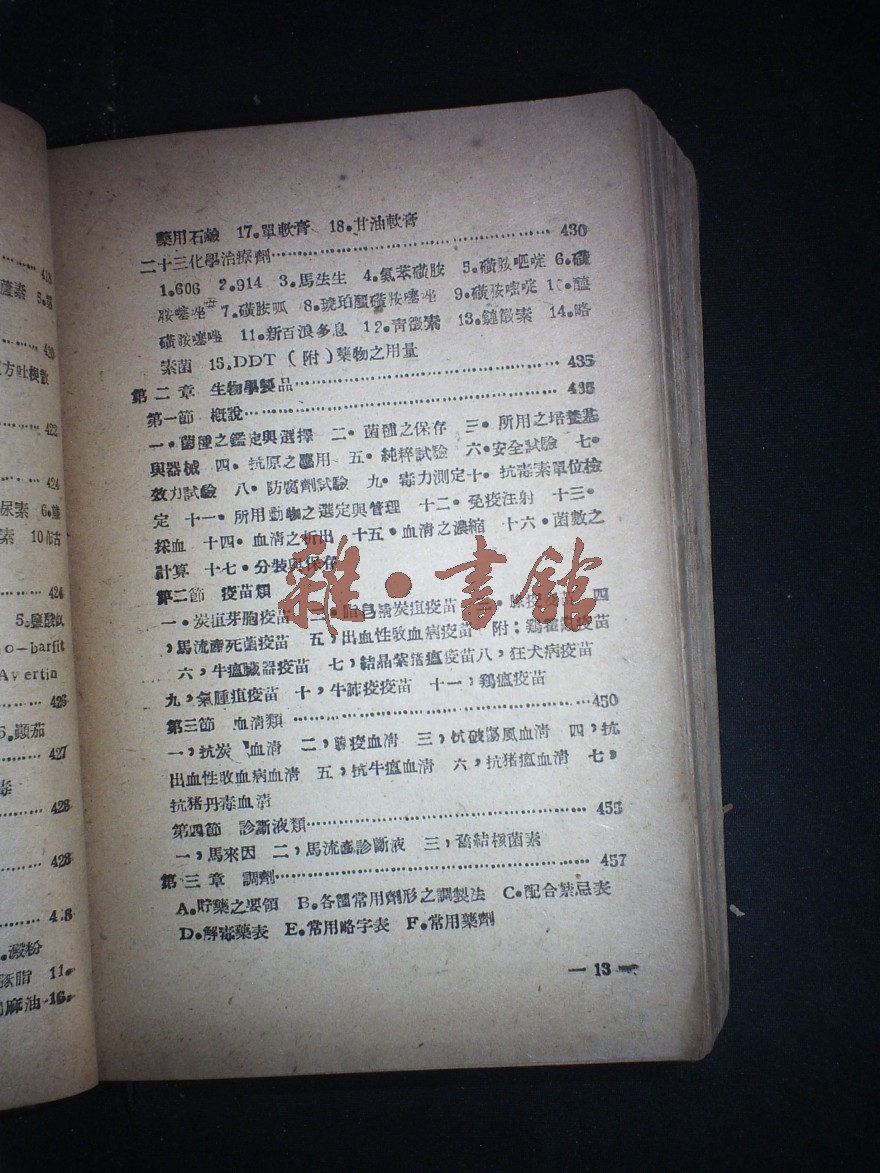 418
蘆素 5.
420
方吐根散
422
424
尿素 6.
素 10.
424
5.鹽酸
o-barbit
Avertin
426
5.顛茄
427
毒
428
428
428
.澱粉
豚脂 11.
麻油 16.
藥用石鹼 17.單軟膏 18.甘油軟膏
二十三化學治療劑……430
1.606 2.914 3.馬法生 4.氨苯磺胺 5.磺胺吡啶 6.磺
胺噻唑 7.磺胺胍 8.琥珀醯磺胺噻唑 9.磺胺嘧啶 10.醯
磺胺噻唑 11.新百浪多息 12.青黴素 13.鏈黴素 14.略
素菌 15.DDT (附)藥物之用量
第二章 生物學製品……435
第一節 概說……435
一・菌種之鑑定與選擇 二・菌種之保存 三・所用之培養基
與器械 四・抗原之應用 五・純粹試驗 六・安全試驗 七・
效力試驗 八・防腐劑試驗 九・毒力測定十・抗毒素單位檢
定 十一・所用動物之選定與管理 十二・免疫注射 十三・
採血 十四・血清之析出 十五・血清之濃縮 十六・菌數之
計算 十七・分裝與保存
第二節 疫苗類
一・炭疽芽胞疫苗 二・脂皂清炭疽疫苗 三・腺疫疫苗 四
,馬流產死菌疫苗 五,出血性敗血病疫苗 附:鷄霍亂疫苗
六,牛瘟臟器疫苗 七,結晶紫猪瘟疫苗八,狂犬病疫苗
九,氣腫疽疫苗 十,牛肺疫疫苗 十一,鷄瘟疫苗
第三節 血清類……450
一,抗炭 血清 二,腺疫血清 三,抗破傷風血清 四,抗
出血性敗血病血清 五,抗牛瘟血清 六,抗猪瘟血清 七,
抗猪丹毒血清
第四節 診斷液類……455
一,馬來因 二,馬流產診斷液 三,舊結核菌素
第三章 調劑……457
A.貯藥之要領 B.各種常用劑形之調製法 C.配合禁忌表
D.解毒藥表 E.常用略字表 F.常用藥劑
— 13 —
雜・書館